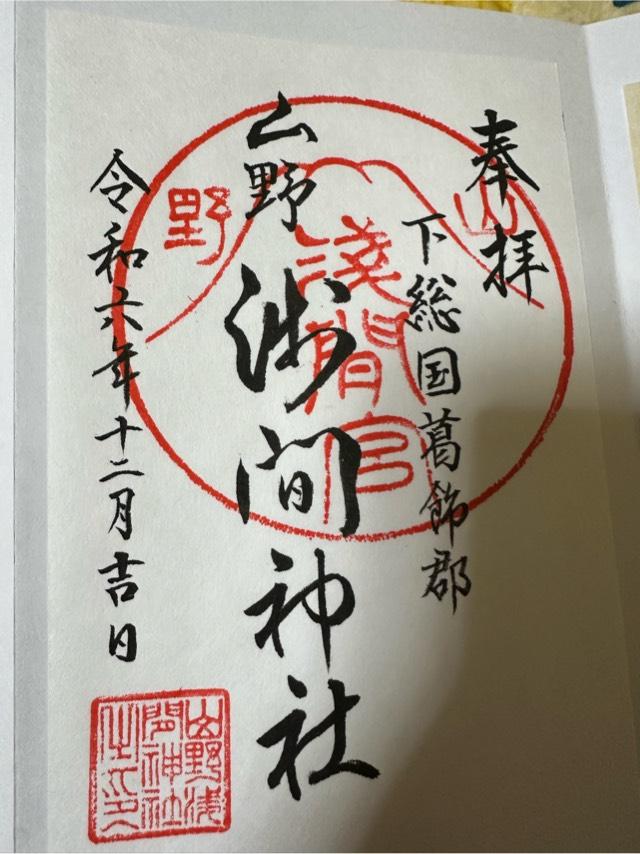 奉拝
下総国葛飾郡
山野
浅間神社
令和六年十二月吉日
山
野
淺間宮
山野浅
間神社
之印